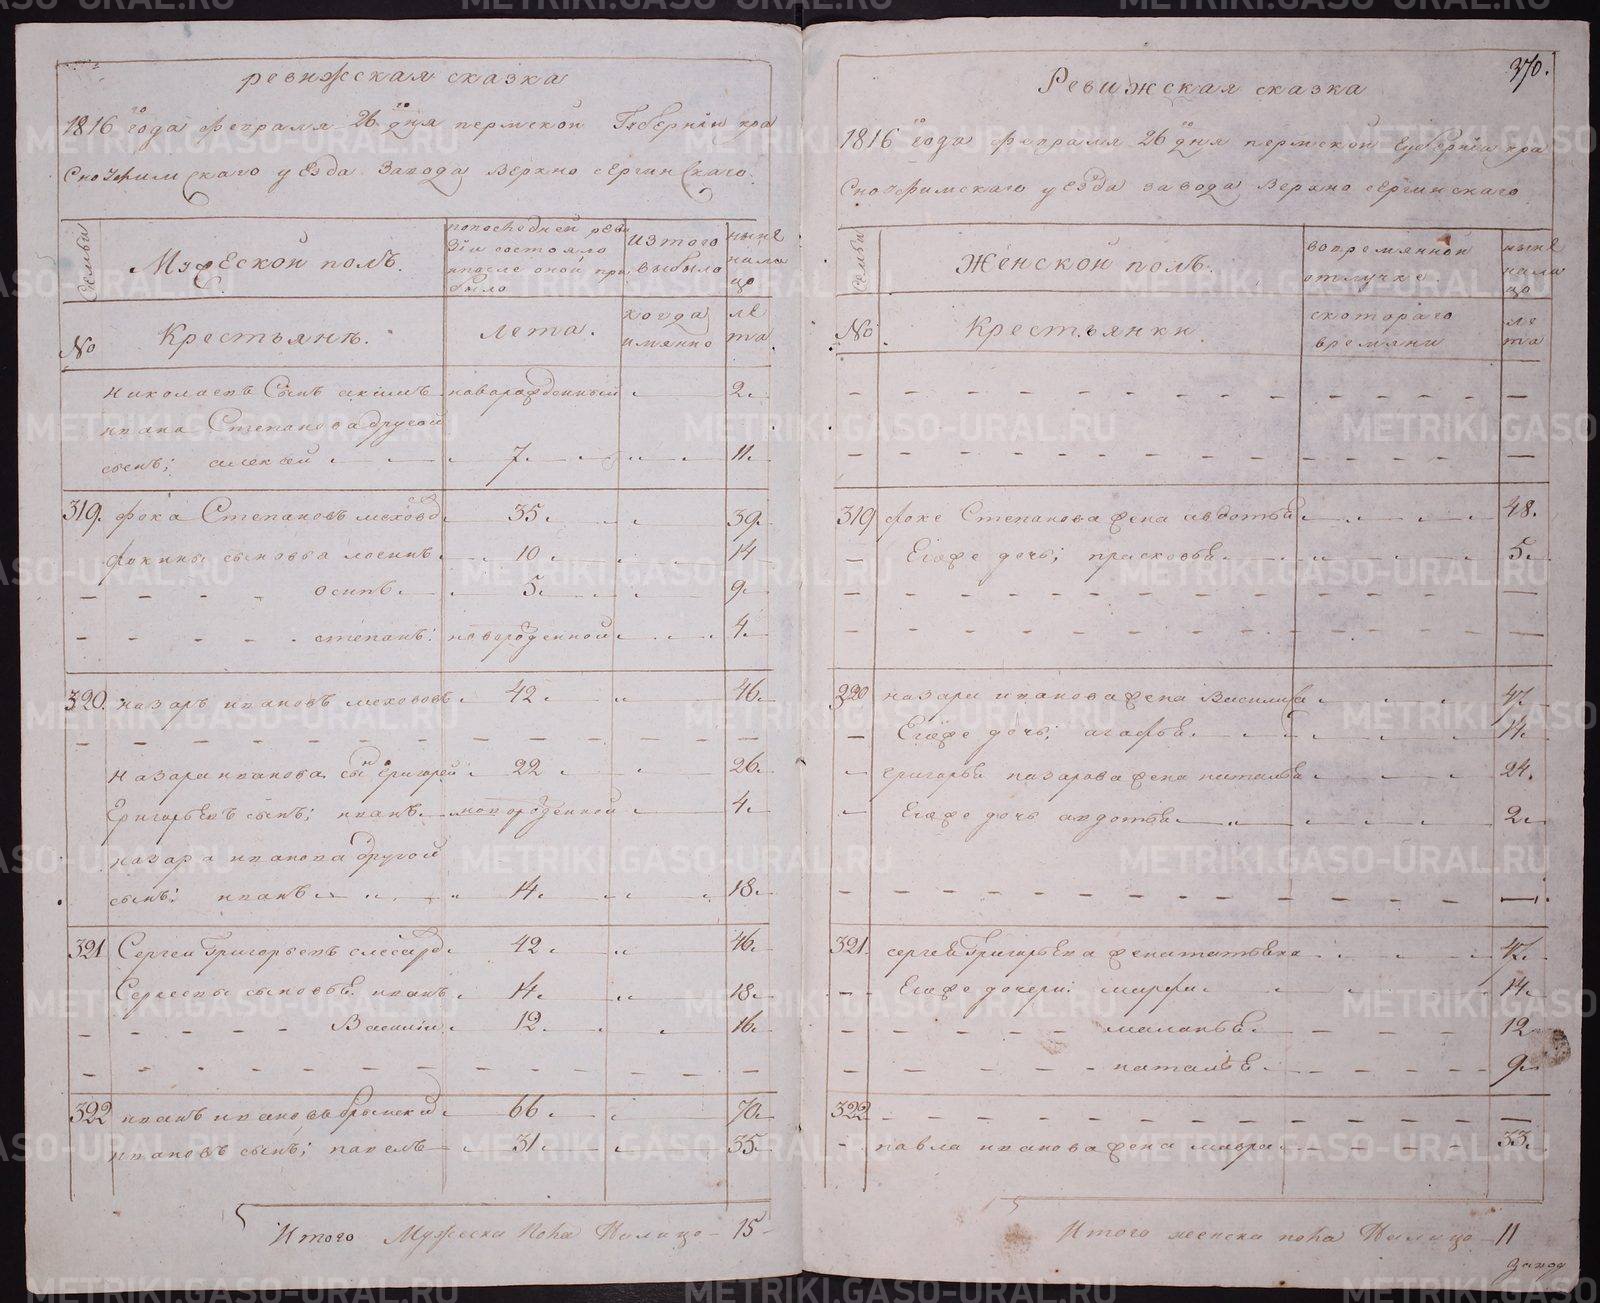 ревижская сказка
1816 го года февраля 26 го дня пермской Губернiи кра
сноуфимскаго уезда завода верхно сергинскаго
семьи
Мужеской полъ.
попоследней реви
зiи состояло
ипосле оной при
было
изтого
выбыло
ныне
нали
цо
No
Крестьянъ.
лета.
когда
имянно
ле
та
николаевъ сынъ акимъ новорожденный 2
ивана Степанова другой
сынъ; алексей 7 11
319. фока Степановъ меховъ 35 39
фокины сыновья лосинъ 10 14
осипъ 5 9
степанъ: новорожденной 4
320. назаръ ивановъ меховъ 42 46
назара иванова сынъ григорей 22 26
Григорьевъ сынъ; иванъ новорожденной 4
назара иванова другой
сынъ; иванъ 14 18
321 Сергей Григорьевъ слесарь 42 46
Сергеевы сыновья иванъ 14 18
Василiи 12 16
322 иванъ ивановъ 66 70
ивановъ сынъ; павелъ 31 35
Итого Мужеска пола Налицо 15
370.
Ревижская сказка
1816 го года февраля 26 го дня пермской губернiи кра
сноуфимскаго уезда завода верхно сергинскаго
семьи
Женской полъ.
вовремянной
отлучке
ныне
нали
цо
No
Крестьянки
скотораго
времяни
ле
та
319 фоке Степанова жена авдотья 48.
Егоже дочь; прасковья 5
320 назара иванова жена Василиса 47
Егоже дочь; агафья 14
григорья назарова жена наталья 24.
Егоже дочь авдотья 2
321. сергея Григорьева жена татьяна 42
Егоже дочери: марфа 14
маланья 12
наталья 9
322
павла иванова жена мавра 33.
Итого женска пола Налицо 11
завод
METRIKI.GASO-URAL.RU